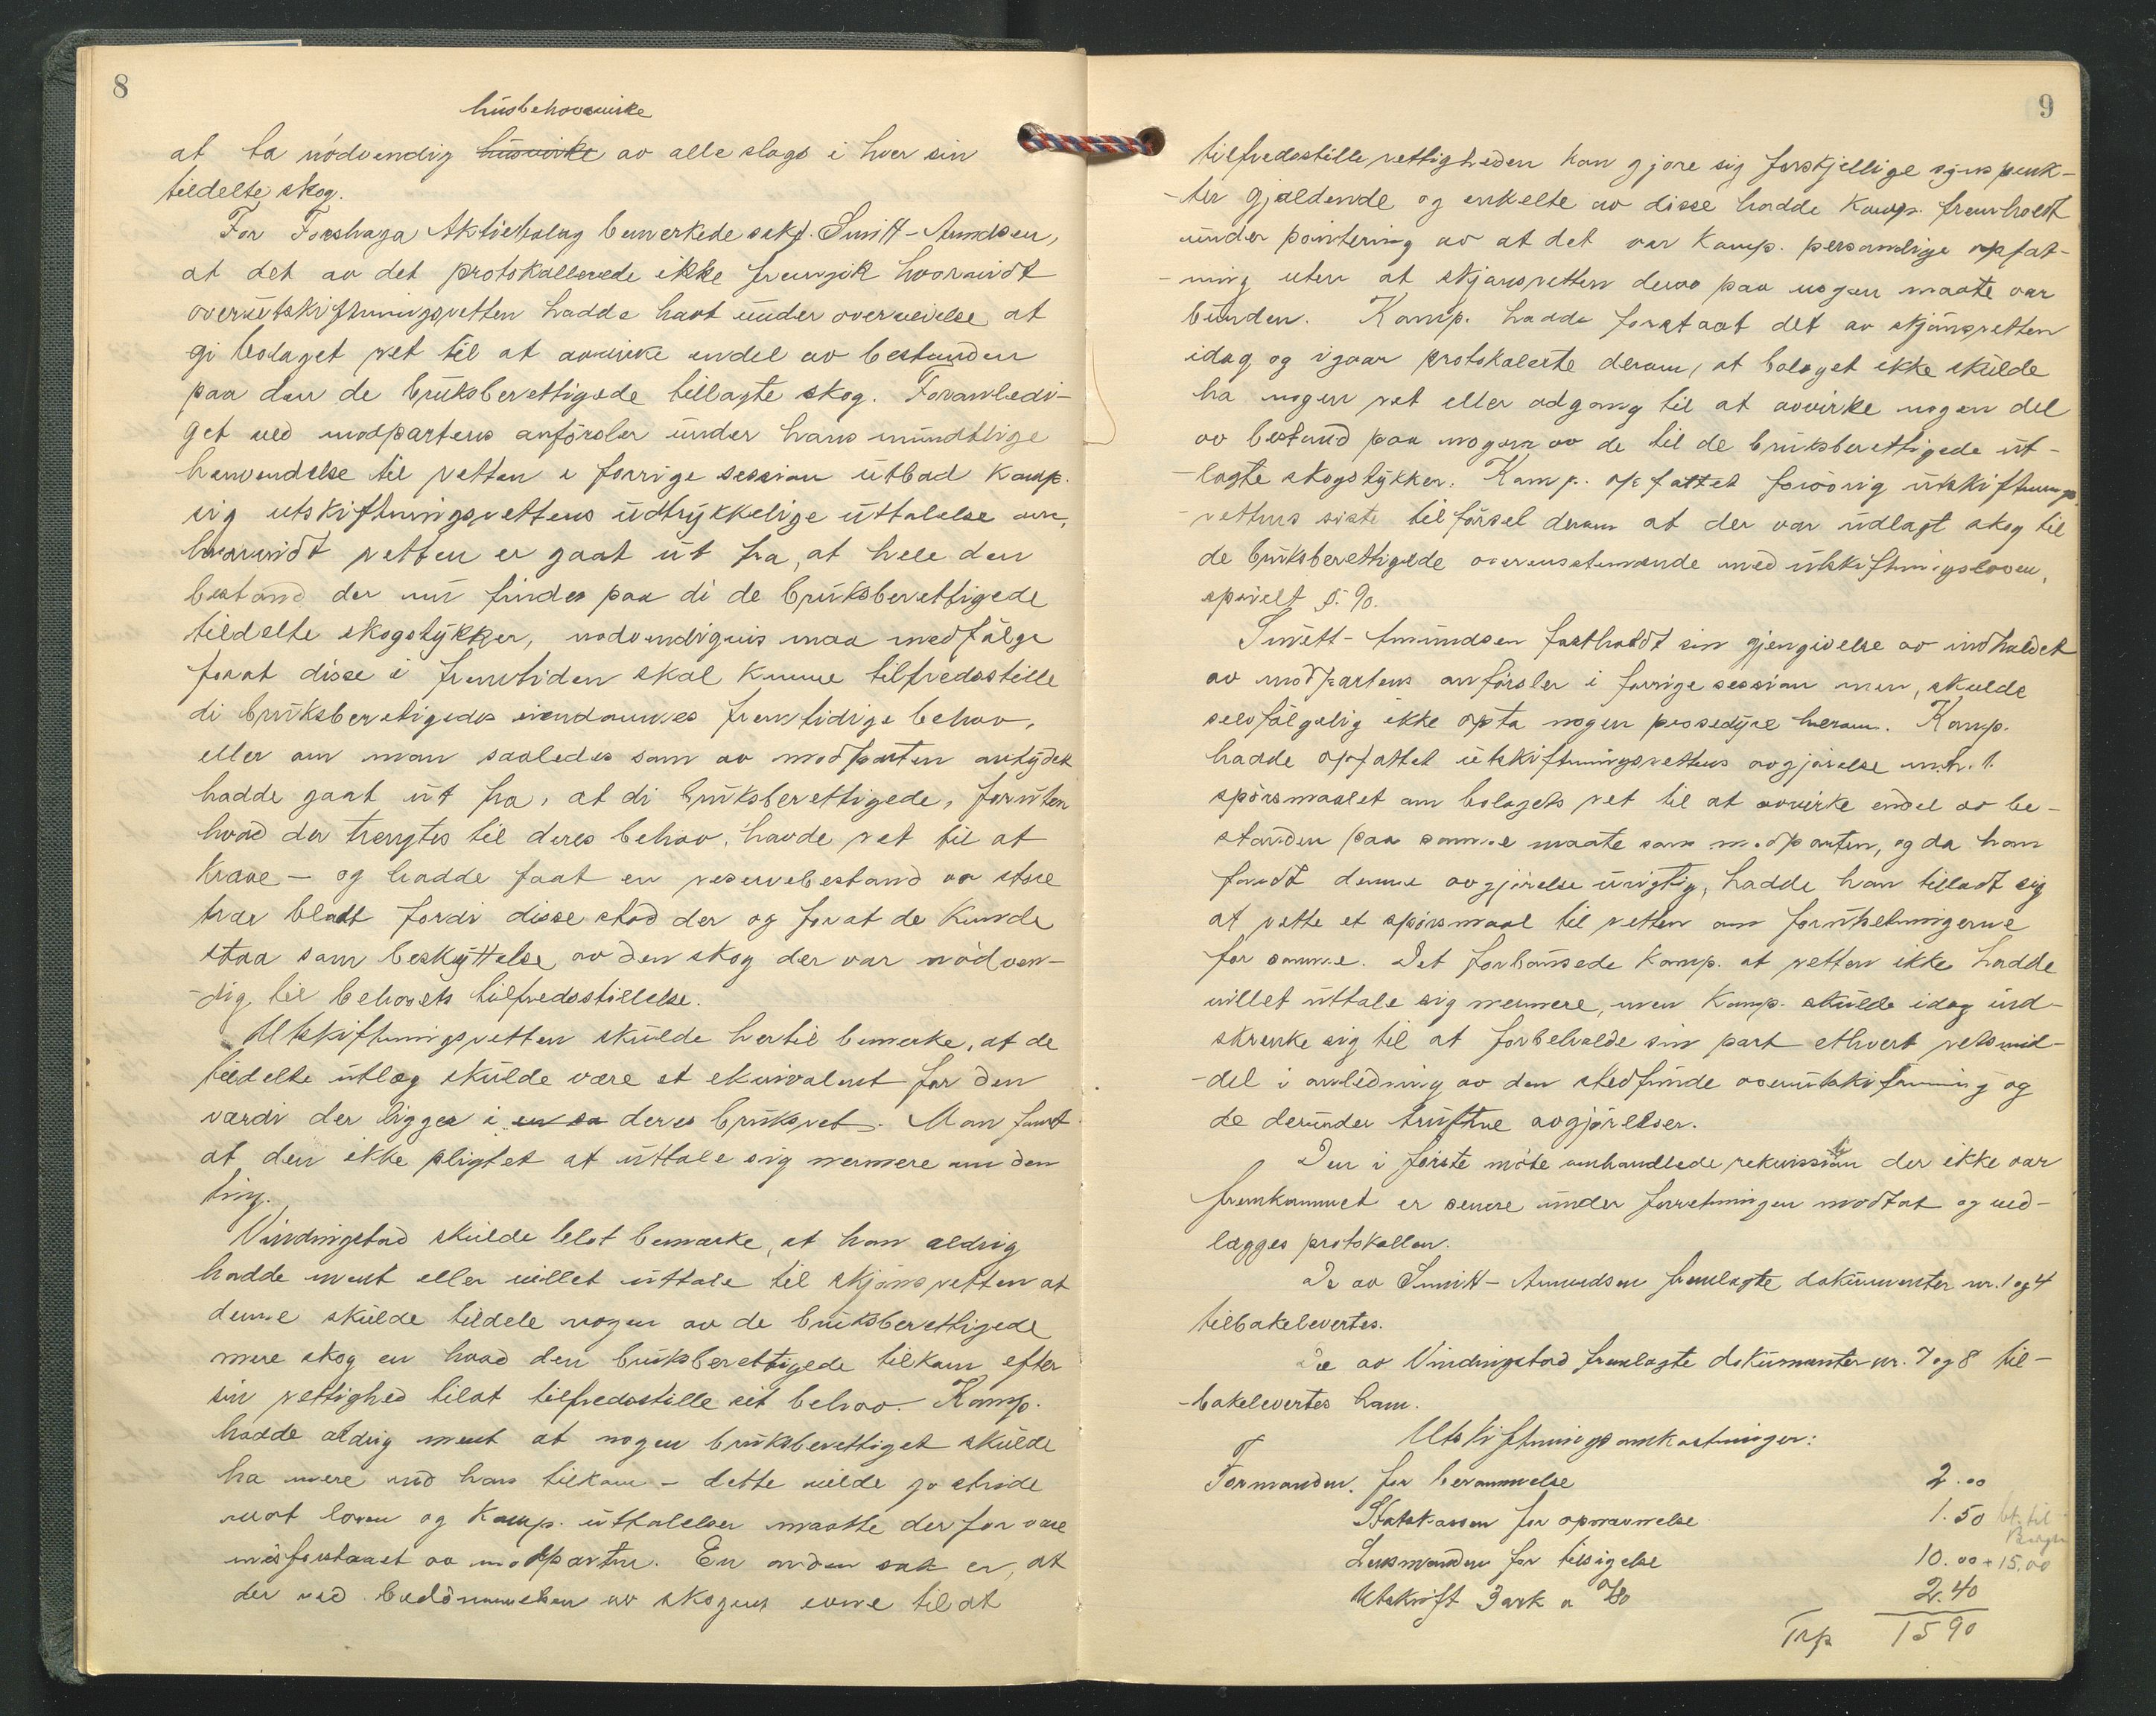 8
husbehovsvirke
at ta nödvendig husvirke av alle slags i hver sin
tildelte skog.
For Forshaga Aktiebolag bemerkede sakf. Smitt-Amundsen,
at det av det protokollerede ikke fremgik hvorvidt
overutskiftningsretten hadde havt under overveielse at
gi bolaget ret til at avvirke endel av bestanden
paa den de bruksberettigede tillagte skog. Foranledi-
get ved modpartens anförsler under hans mundtlige
henvendelse til retten i forrige session utbad Komp.
sig utskiftningsrettens udtrykkelige uttalelse om,
hvorvidt retten er gaat ut fra, at hele den
bestand der nu findes paa di de bruksberettigede
tildelte skogstykker, nodvendigvis maa medfölge
forat disse i fremtiden skal kunne tilfredsstille
di bruksberetigedes eiendommes fremtidige behov,
eller om man saaledes som av modparten antydet
hadde gaat ut fra, at di bruksberettigede, foruten
hvad der trengtes til deres behov, havde ret til at
kræve - og hadde faat en reservebestand av store
trær blott fordi disse stod der og forat de kunde
staa som beskyttelse av den skog der var nödven-
-dig til behovets tilfredsstillelse.
Utskiftningsretten skulde hertil bemerke, at de
tildelte utlæg skulde være et ekvivalent for den
værdi der ligger i en sa deres bruksret. Man fandt
at den ikke pligtet at uttale sig nermere om den
ting.
Vindingstad skulde blot bemærke, at han aldrig
hadde ment eller villet uttale til skjönsretten at
denne skulde tildele nogen av de bruksberettigede
mere skog en hvad den bruksberettigede tilkom efter
sin rettighed tilat tilfredsstille sit behov. Komp.
hadde aldrig ment at nogen bruksberettiget skulde
ha mere end ham tilkom - dette vilde jo stride
mot loven og Komp. uttalelser maatte derfor være
misforstaaet av modparten. En anden sak er, at
der ved bedömmelsen av skogens evne til at
9
tilfredsstille rettigheden kan gjöre sig forskjellige synspunk-
-ter gjældende og enkelte av disse hadde Komp. fremholdt
under pointering av at det var Komp. personlige opfat-
-ning uten at skjønsretten derav paa nogen maate var
bunden. Komp. hadde forstaat det av skjönsretten
idag og igaar protokolerte derom, at bolaget ikke skulde
ha nogen ret eller adgang til at avvirke nogen del
av bestand paa nogen av de til de bruksberettigede ut-
-lagte skogstykker. Komp. opfattet forövrig utskiftnings
-rettens siste tilförsel derom at der var udlagt skog til
de bruksberettigede overensstemmende med utskiftningsloven,
specielt §. 90.
Smitt-Amundsen fastholdt sin gjengivelse av indholdet
av modpartens anförsler i forrige session men, skulde
selvfölgelig ikke opta nogen prosedyre herom. Komp.
hadde opfattet utskiftningsrettens avgjörelse m.h.t.
spörsmaalet om bolagets ret til at avvirke endel av be-
standen paa samme maate som modparten, og da han
fandt denne avgjörelse urigtig, hadde han tilladt sig
at rette et spörsmaal til retten om forutsetningerne
for samme. Det forbausede Komp. at retten ikke hadde
villet uttale sig nermere, men Komp. skulde idag ind-
skrenke sig til at forbeholde sin part ethvert retsmid-
-del i anledning av den stedfunde overutskiftning og
de derunder trufne avgjörelser.
Den i förste möte omhandlede rekvisition der ikke var
fremkommet er senere under forretningen modtat og ved-
lægges protokollen.
De av Smitt-Amundsen fremlagte dokumenter nr. 1 og 4
tilbakelevertes.
De av Vindingstad fremlagte dokumenter nr. 7 og 8 til-
-bakelevertes ham.
Utskiftningsomkostninger:
Formanden. for berammelse 2.00
Statskassen for opnævnelse 1.50 bt. til
Lensmanden for tilsigelse 10.00 + 15,00
Utskrift 3 ark a 0/80 2.40
Trp 15 90